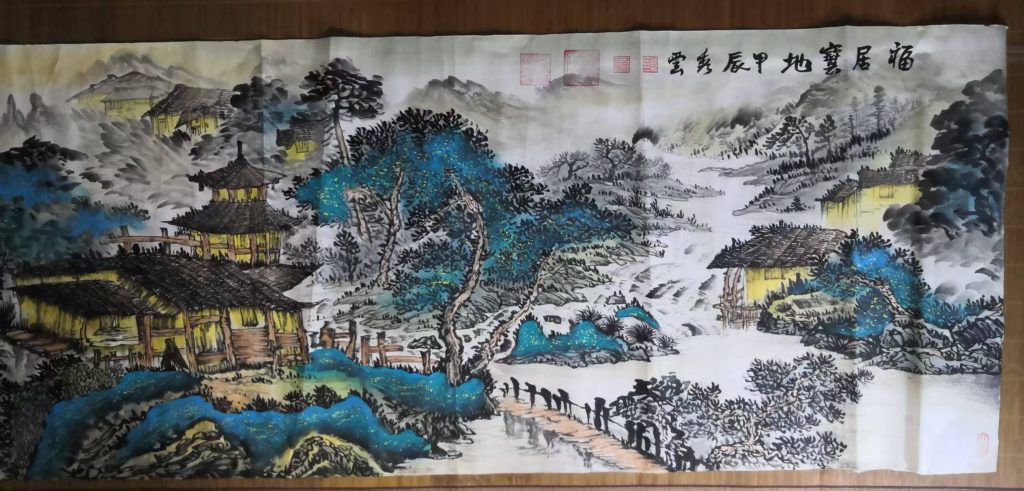 福居寶地甲辰秀雲